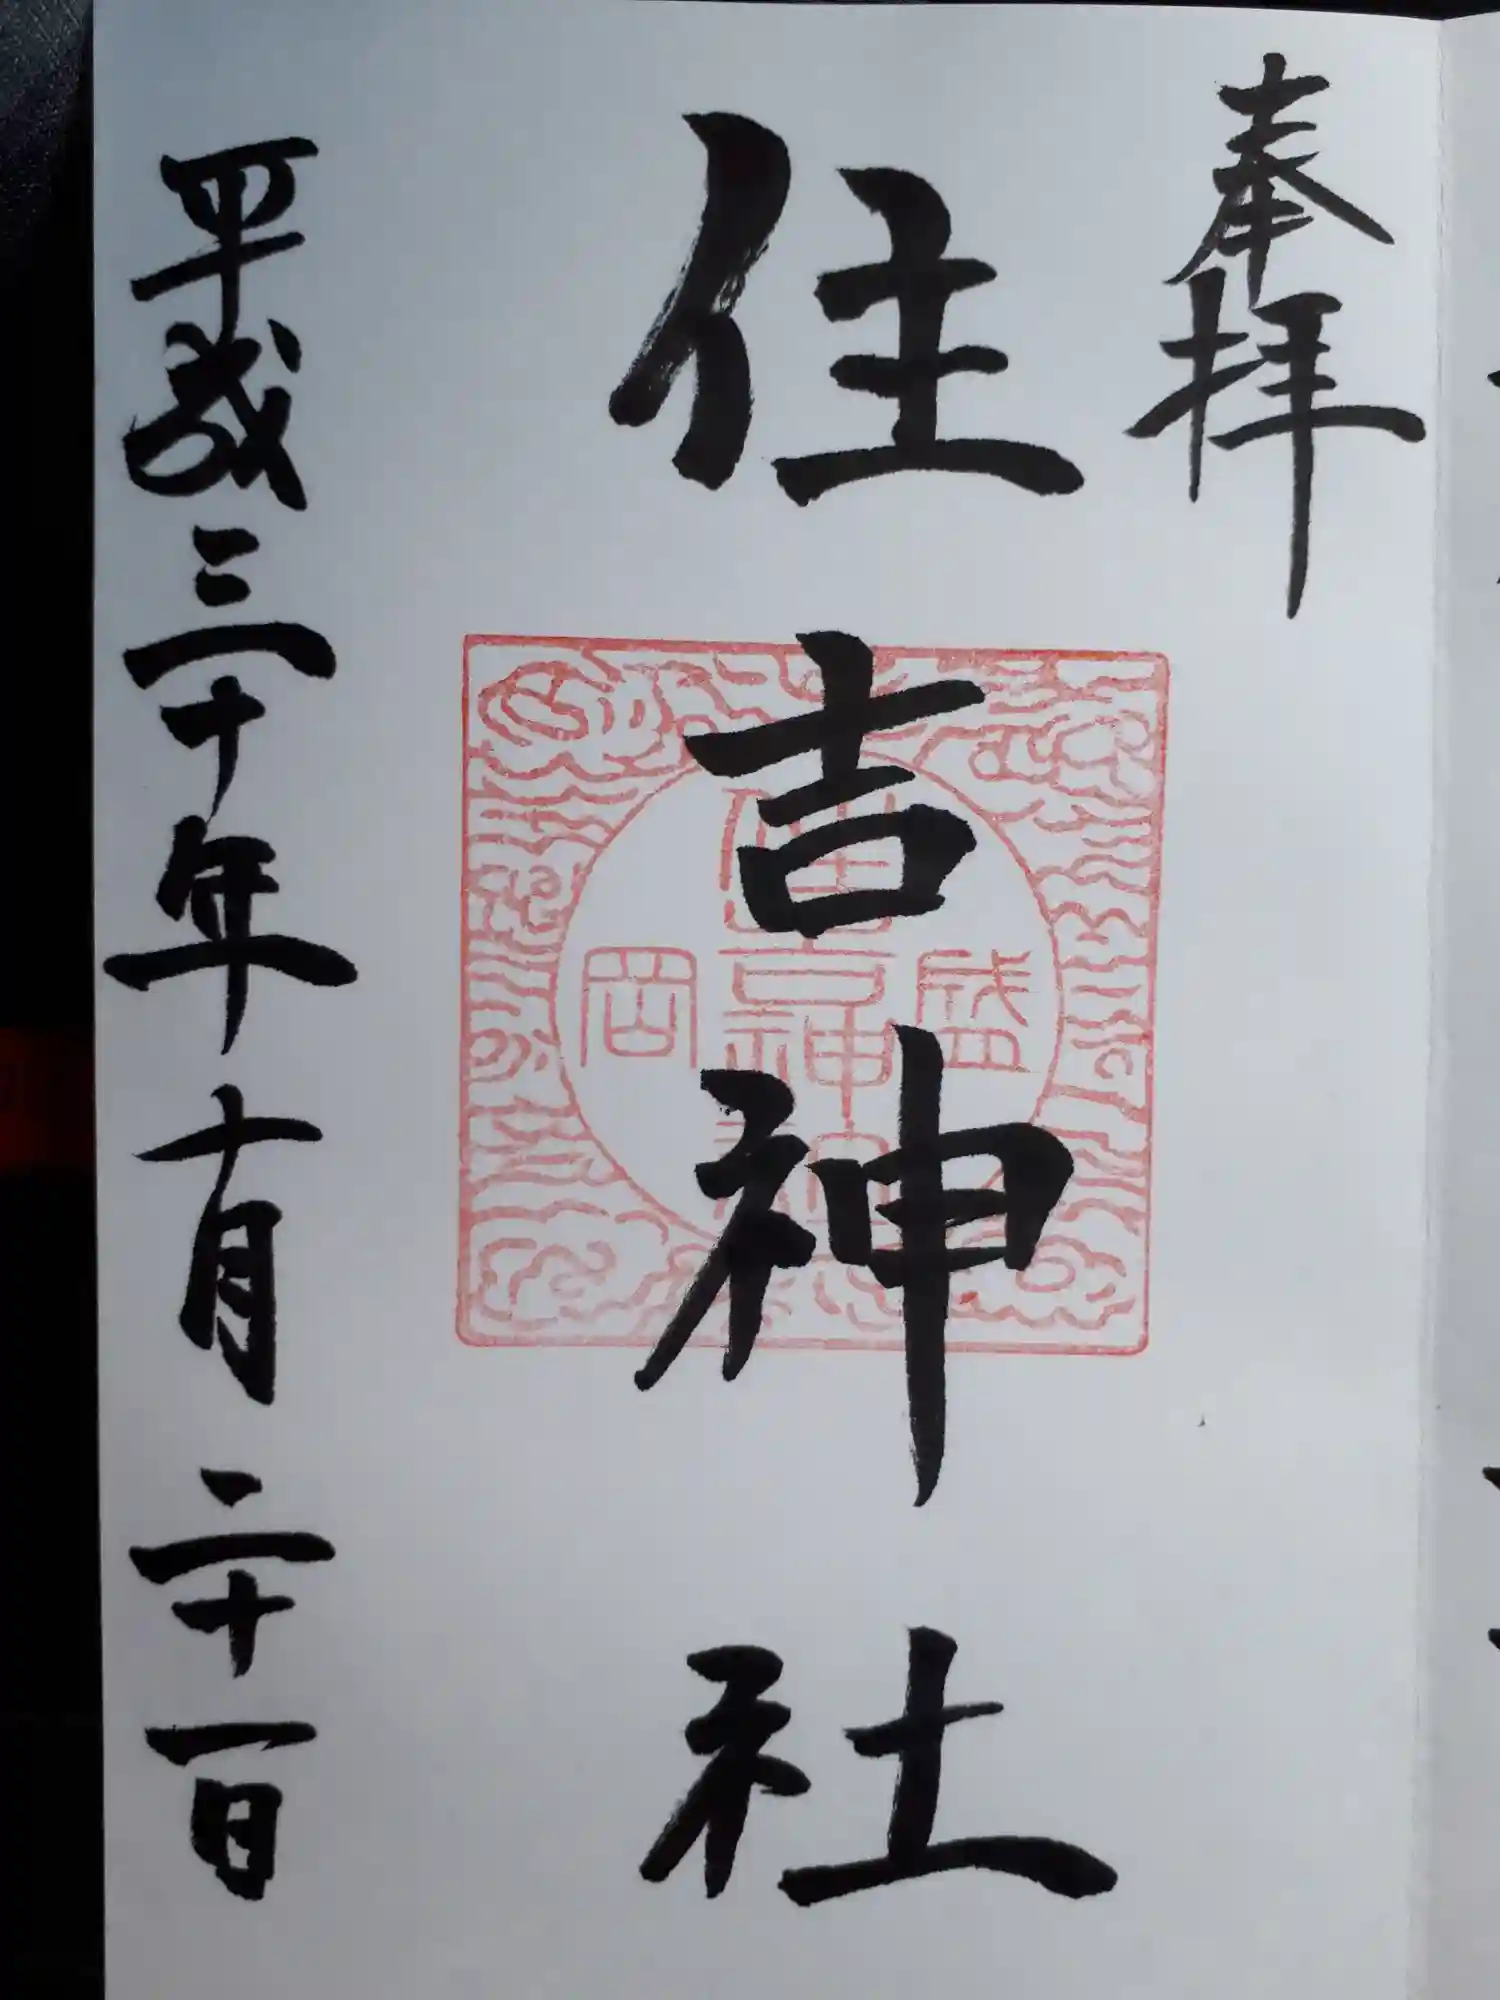 奉拝
住吉神社
盛
岡
平成三十年十月二十一日